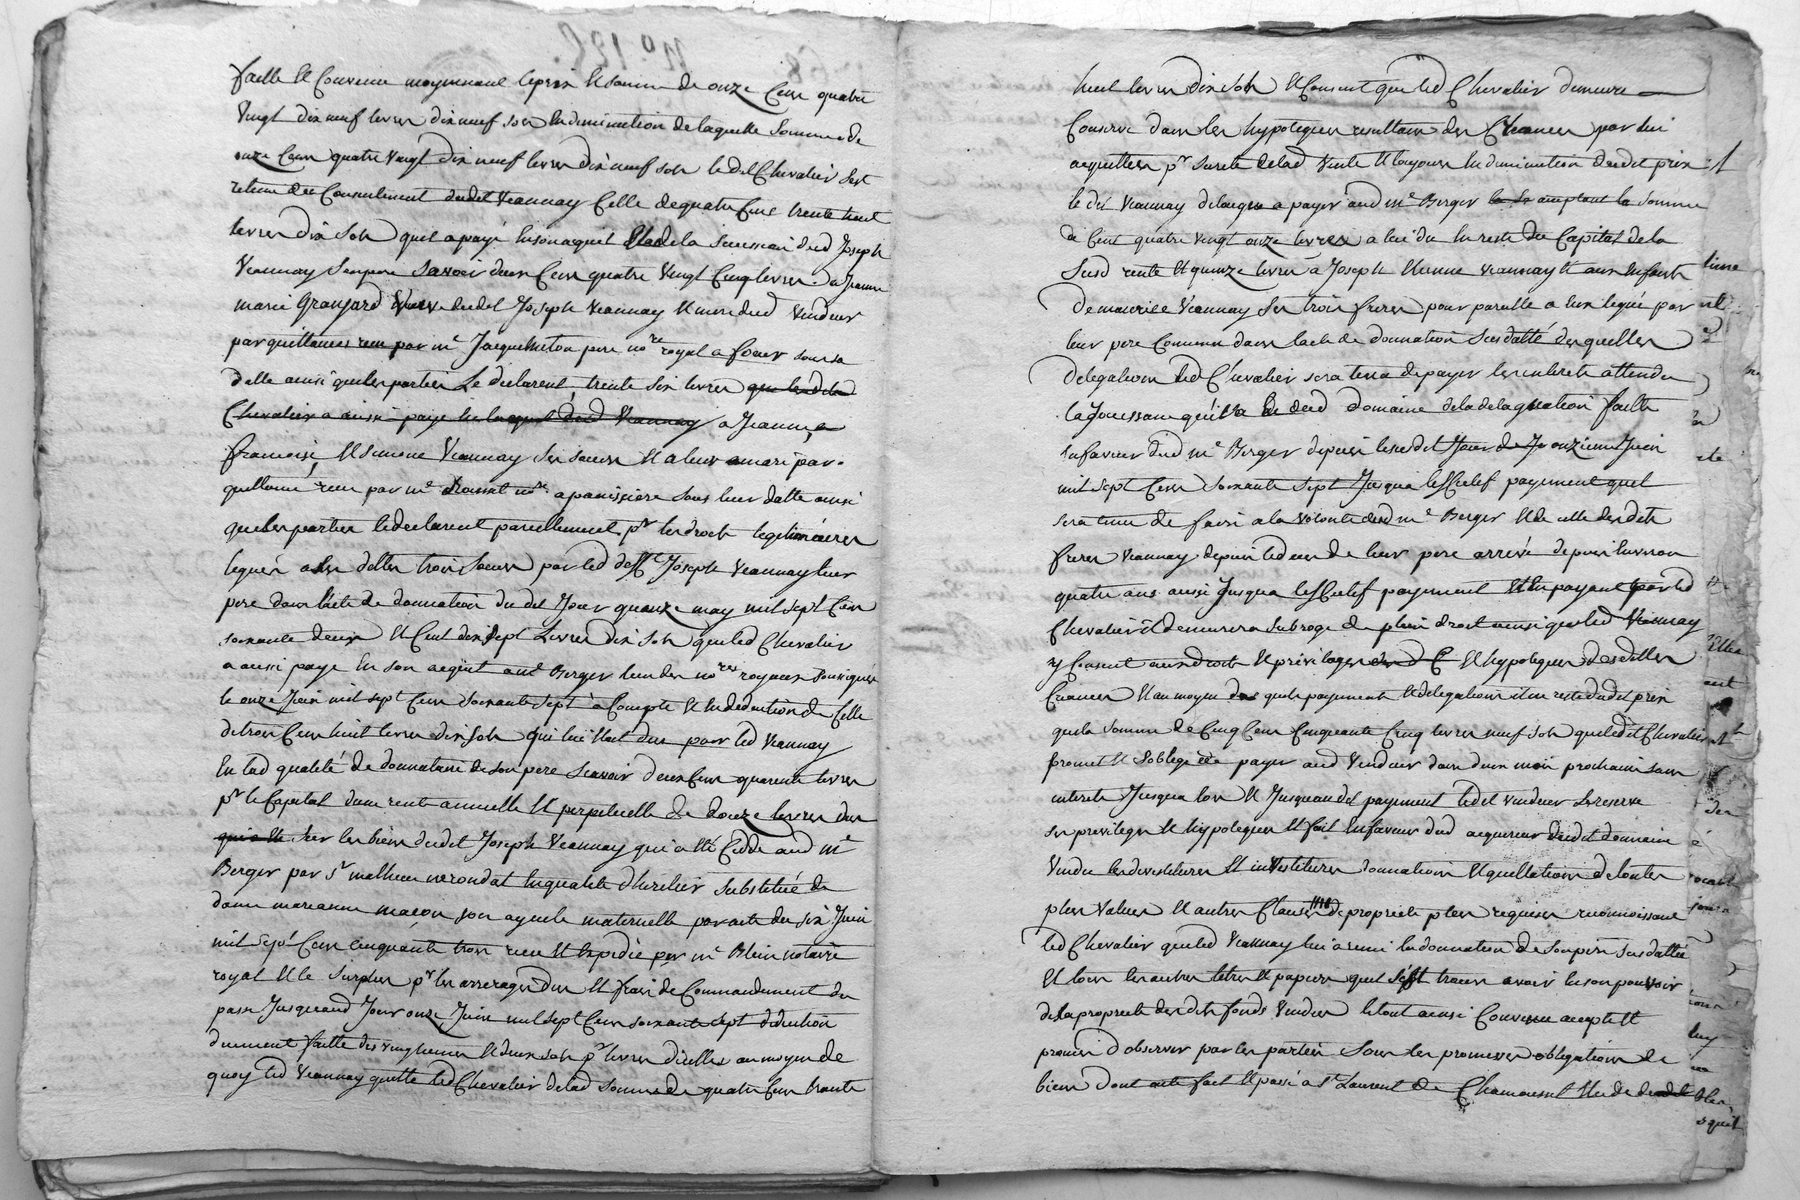 faitte et Convenue moyennant le prix et somme de onze Cent quatre
Vingt dix neuf livres dix neuf sols en diminution de laquelle Somme de
onze Cent quatre vingt dix neuf livres dix neuf sols ledit Chevalier s'est
retenu du Consentement dudit Veannay Celle de quatre Cent trente huit
livres dix sols quil a payé en son aquit et de la succession dud Joseph
Veannay Son pere Savoir deux Cent quatre Vingt Cinq livres a Jeanne
marie Granjard Veuve dudit Joseph Veannay et mere dud Vendeur
par quittances recu par mr Jacquemeton pere nore royal a feurs sous sa
datte ainsi que les parties Le declarent, trente six livres que ledit
Chevalier a aussi paye en laquit dud Veannay a Jeanne
francoise et Simone Veannay Ses Sœurs et a leurs maris par
quittance recu par me nore a panissiere sous leur datte ainsi
que les parties le declarent pareillement pr les droits legitimaires
legués a les dittes trois Sœurs par led defft Joseph Veannay leur
pere dans l'acte de donnation du dit Jour quinze may mil sept Cent
soixante deux et Cent dix sept Livres dix sols que led Chevalier
a aussi payé En son aquit a me Berger lun des nores royaux soussignés
le onze Juin mil sept Cent soixante sept à Compte et en deduction de Celle
de trois Cent huit livres dix sols qui lui etoit due par led Veannay
En lad qualité de donnataire de son pere Scavoir deux Cent quarante livres
pr le Capital dune rente annuelle et perpetuelle de douze livres due
sur les biens dudit Joseph Veannay qui a eté Cedée aud me
Berger par Sr mathieu nerondat en qualité d'heritier Substitué de
dame marianne macon son ayeule maternelle par acte du six Juin
mil sept Cent cinquante trois recu et expedié par me Blein notaire
royal et le Surplus pr les arrerages dus et frais de Commandement du
passé Jusquaud Jour onze Juin mil sept Cent soixante sept deduction
duement faitte des vingtiemes et deux sols pr livres dicelles au moyen de
quoy led Veannay quitte led Chevalier de lad somme de quatre Cent trente
huit livres dix sols et Consent que led Chevalier demeure
Conservé dans les hypoteques resultans des Creances par lui
acquittées pr sureté de lad vente et toujours en diminution dudit prix
le dit Veannay delegue a payer aud me Berger la somme
de Cent quatre Vingt onze livres a lui du en reste du Capital de la
Susd rente et quinze livres a Joseph Etienne Veannay et aux Enfants
de maurice Veannay Ses trois freres pour pareille a eux legué par
leur pere Commun dans lacte de donnation Susdatté desquelles
delegations led Chevalier sera tenu de payer les interets attendu
la Jouissance qu'il a eu dud domaine de la delegation faitte
en faveur dud me Berger depuis le susdit Jour onzieme Juin
mil sept Cent soixante sept Jusqua leffectif payement quil
sera tenu de faire a la volonté dud me Berger et de celle desdits
freres Veannay depuis led de leur pere arrivé depuis environ
quatre ans aussi Jusqua leffectif payement et en payant par led
Chevalier il demeurera Subrogé de plein droit ainsi que led Veannay
y Consent aux droits et privileges et hypoteques desdittes
Creances et au moyen des quels payements et delegations il ne reste dudit prix
que la somme de Cinq Cent Cinquante Cinq livres neuf sols que ledit Chevalier
promet et Soblige de payer aud Vendeur dans deux mois prochains sans
interets Jusqua lors et Jusquaudit payement ledit Vendeur se reserve
ses privileges et hypoteques et fait en faveur dud acquereur dudit domaine
Vendu les devestitures et investitures donnation et quittations de toutes
plus values et autres Clauses de proprieté plus requises reconnoissant
led Chevalier que led Veannay lui a remis la donnation de son pere susdattée
et tous les autres titres et papiers quil s'est trouvé avoir en son pouvoir
de la proprieté desdits fonds Vendus le tout ainsi Convenu accepté et
promis d'observer par les parties Sous les promesses obligations de
biens Dont acte fait et passé a St Laurent de Chamousset